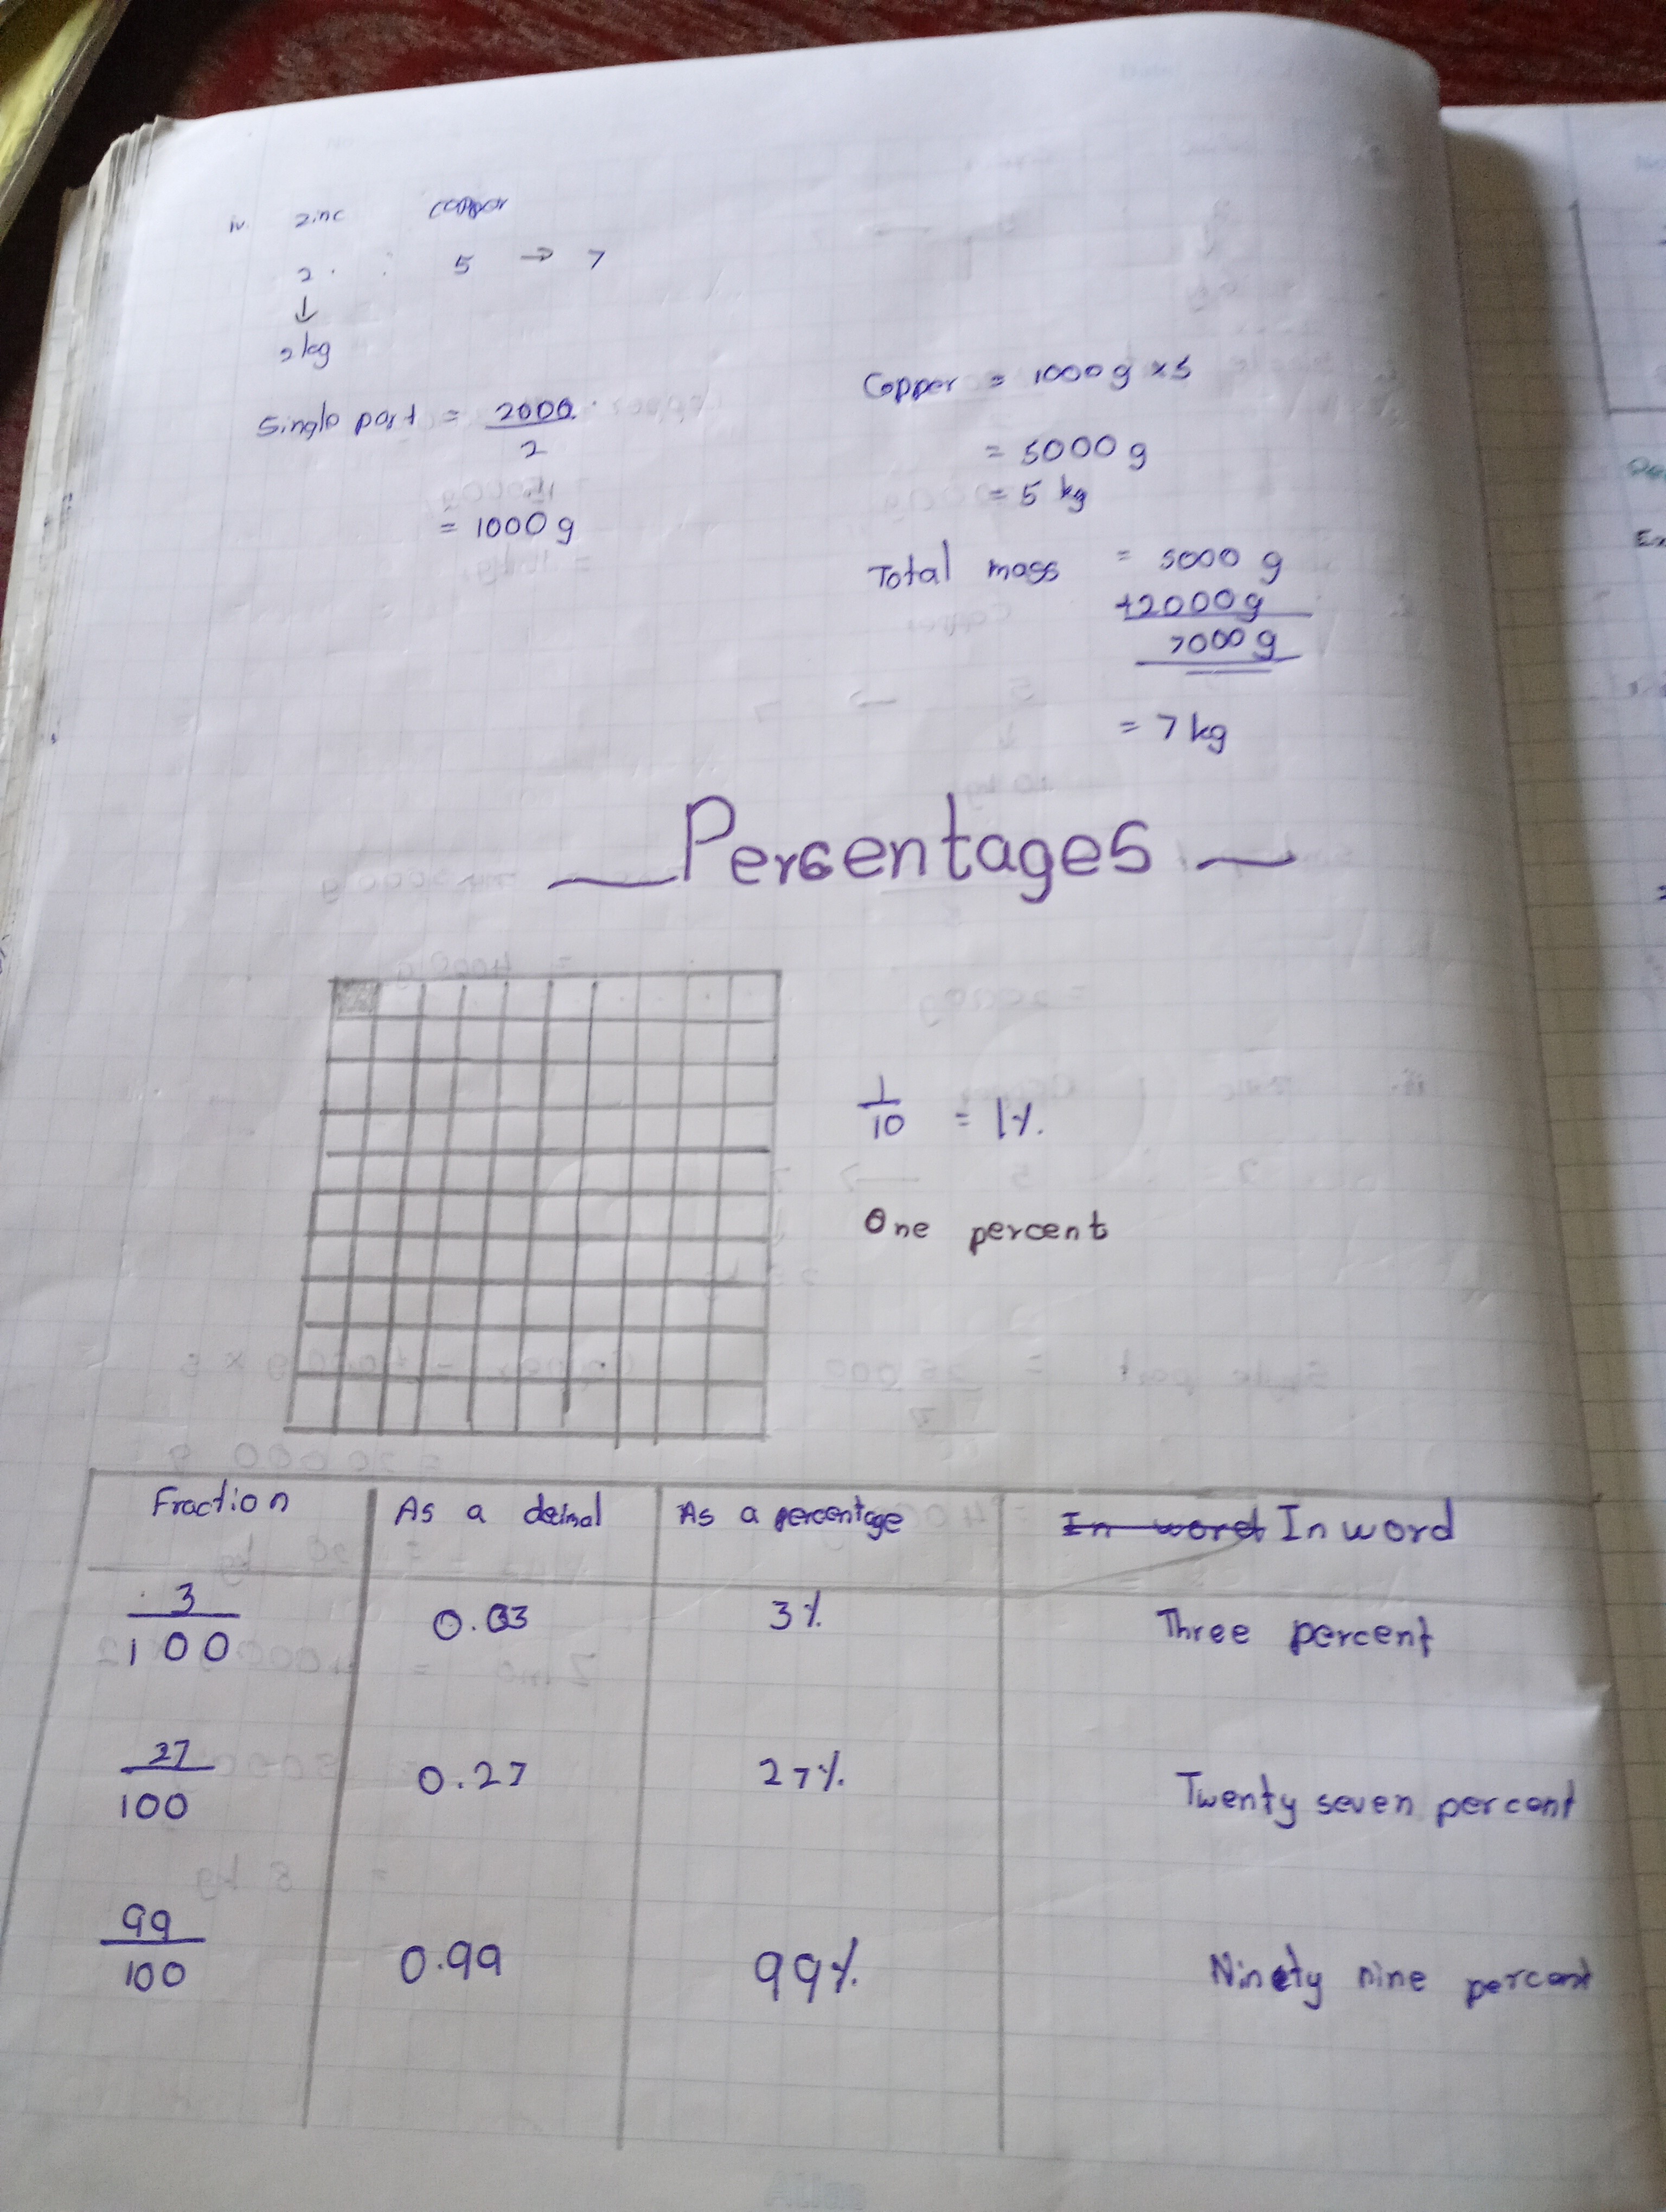 iv. zinc copper
2 : 5 → 7
↓
2 kg
Single part = 2000
2
= 1000 g
Copper = 1000 g × 5
= 5000 g
= 5 kg
Total mass = 5000 g
+2000 g
7000 g
= 7 kg
Percentages
1
10
= 1%
One percent
Fraction As a decimal As a percentage In word In word
3
100
0.03 3% Three percent
27
100
0.27 27% Twenty seven percent
99
100
0.99 99% Ninety nine percent
Atlas